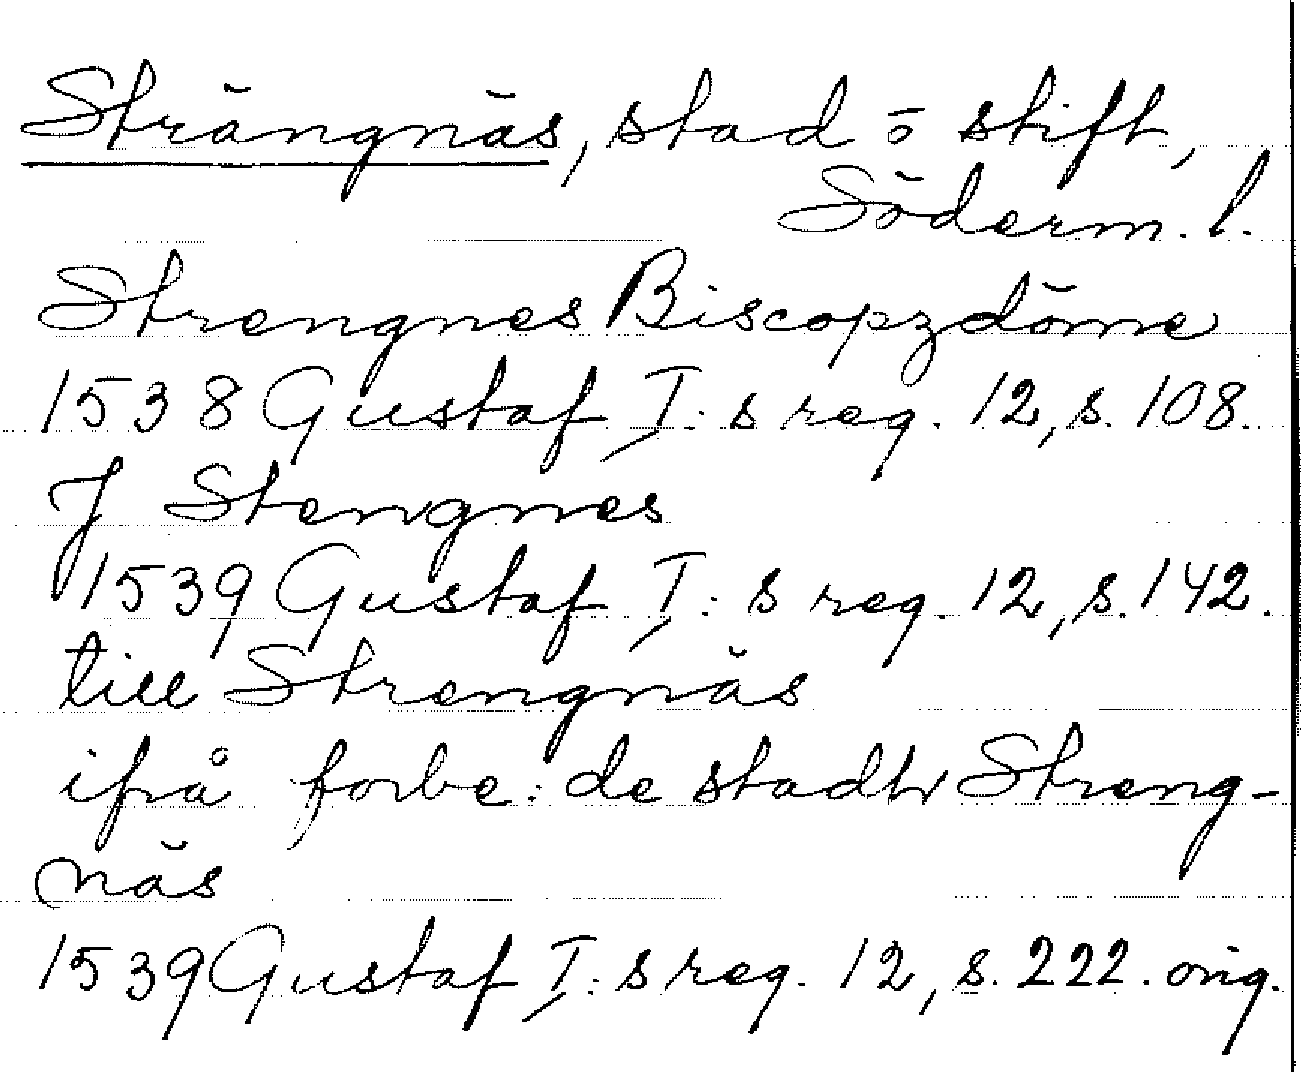 Strängnäs, stad o stift,
Söderm. l.
Strengnes Biscopzdöme
1538 Gustaf I:s reg. 12, s. 108.
J Stengnes
1539 Gustaf I:s reg. 12, s. 142.
till Strengnäs
ifrå forbe: de stadh Streng-
näs
1539 Gustaf I:s reg. 12, s. 222. orig.